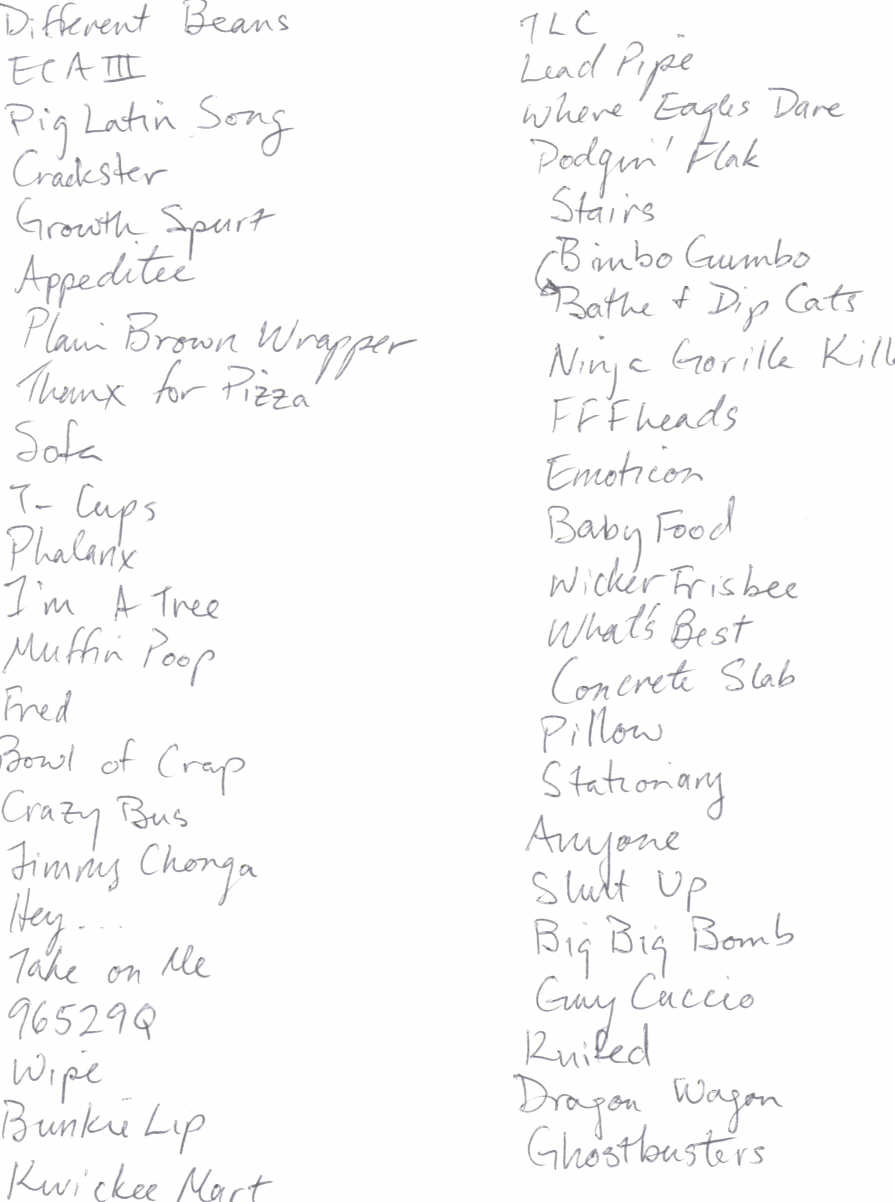 Different Beans
ECA III
Pig Latin Song
Crackster
Growth Spurt
Appeditee
Plain Brown Wrapper
Thanx for Pizza
Sofa
T-Cups
Phalanx
I'm A Tree
Muffin Poop
Fred
Bowl of Crap
Crazy Bus
Jimmy Chonga
Hey...
Take on Me
96529Q
Wipe
Bunkie Lip
Kwickee Mart
TLC
Lead Pipe
Where Eagles Dare
Dodgin' Flak
Stairs
Bimbo Gumbo
Bathe + Dip Cats
Ninja Gorilla Kill
FFFheads
Emoticon
Baby Food
Wicker Frisbee
What's Best
Concrete Slab
Pillow
Stationary
Anyone
Up
Big Big Bomb
Guy Caccio
Dragon Wagon
Ghostbusters